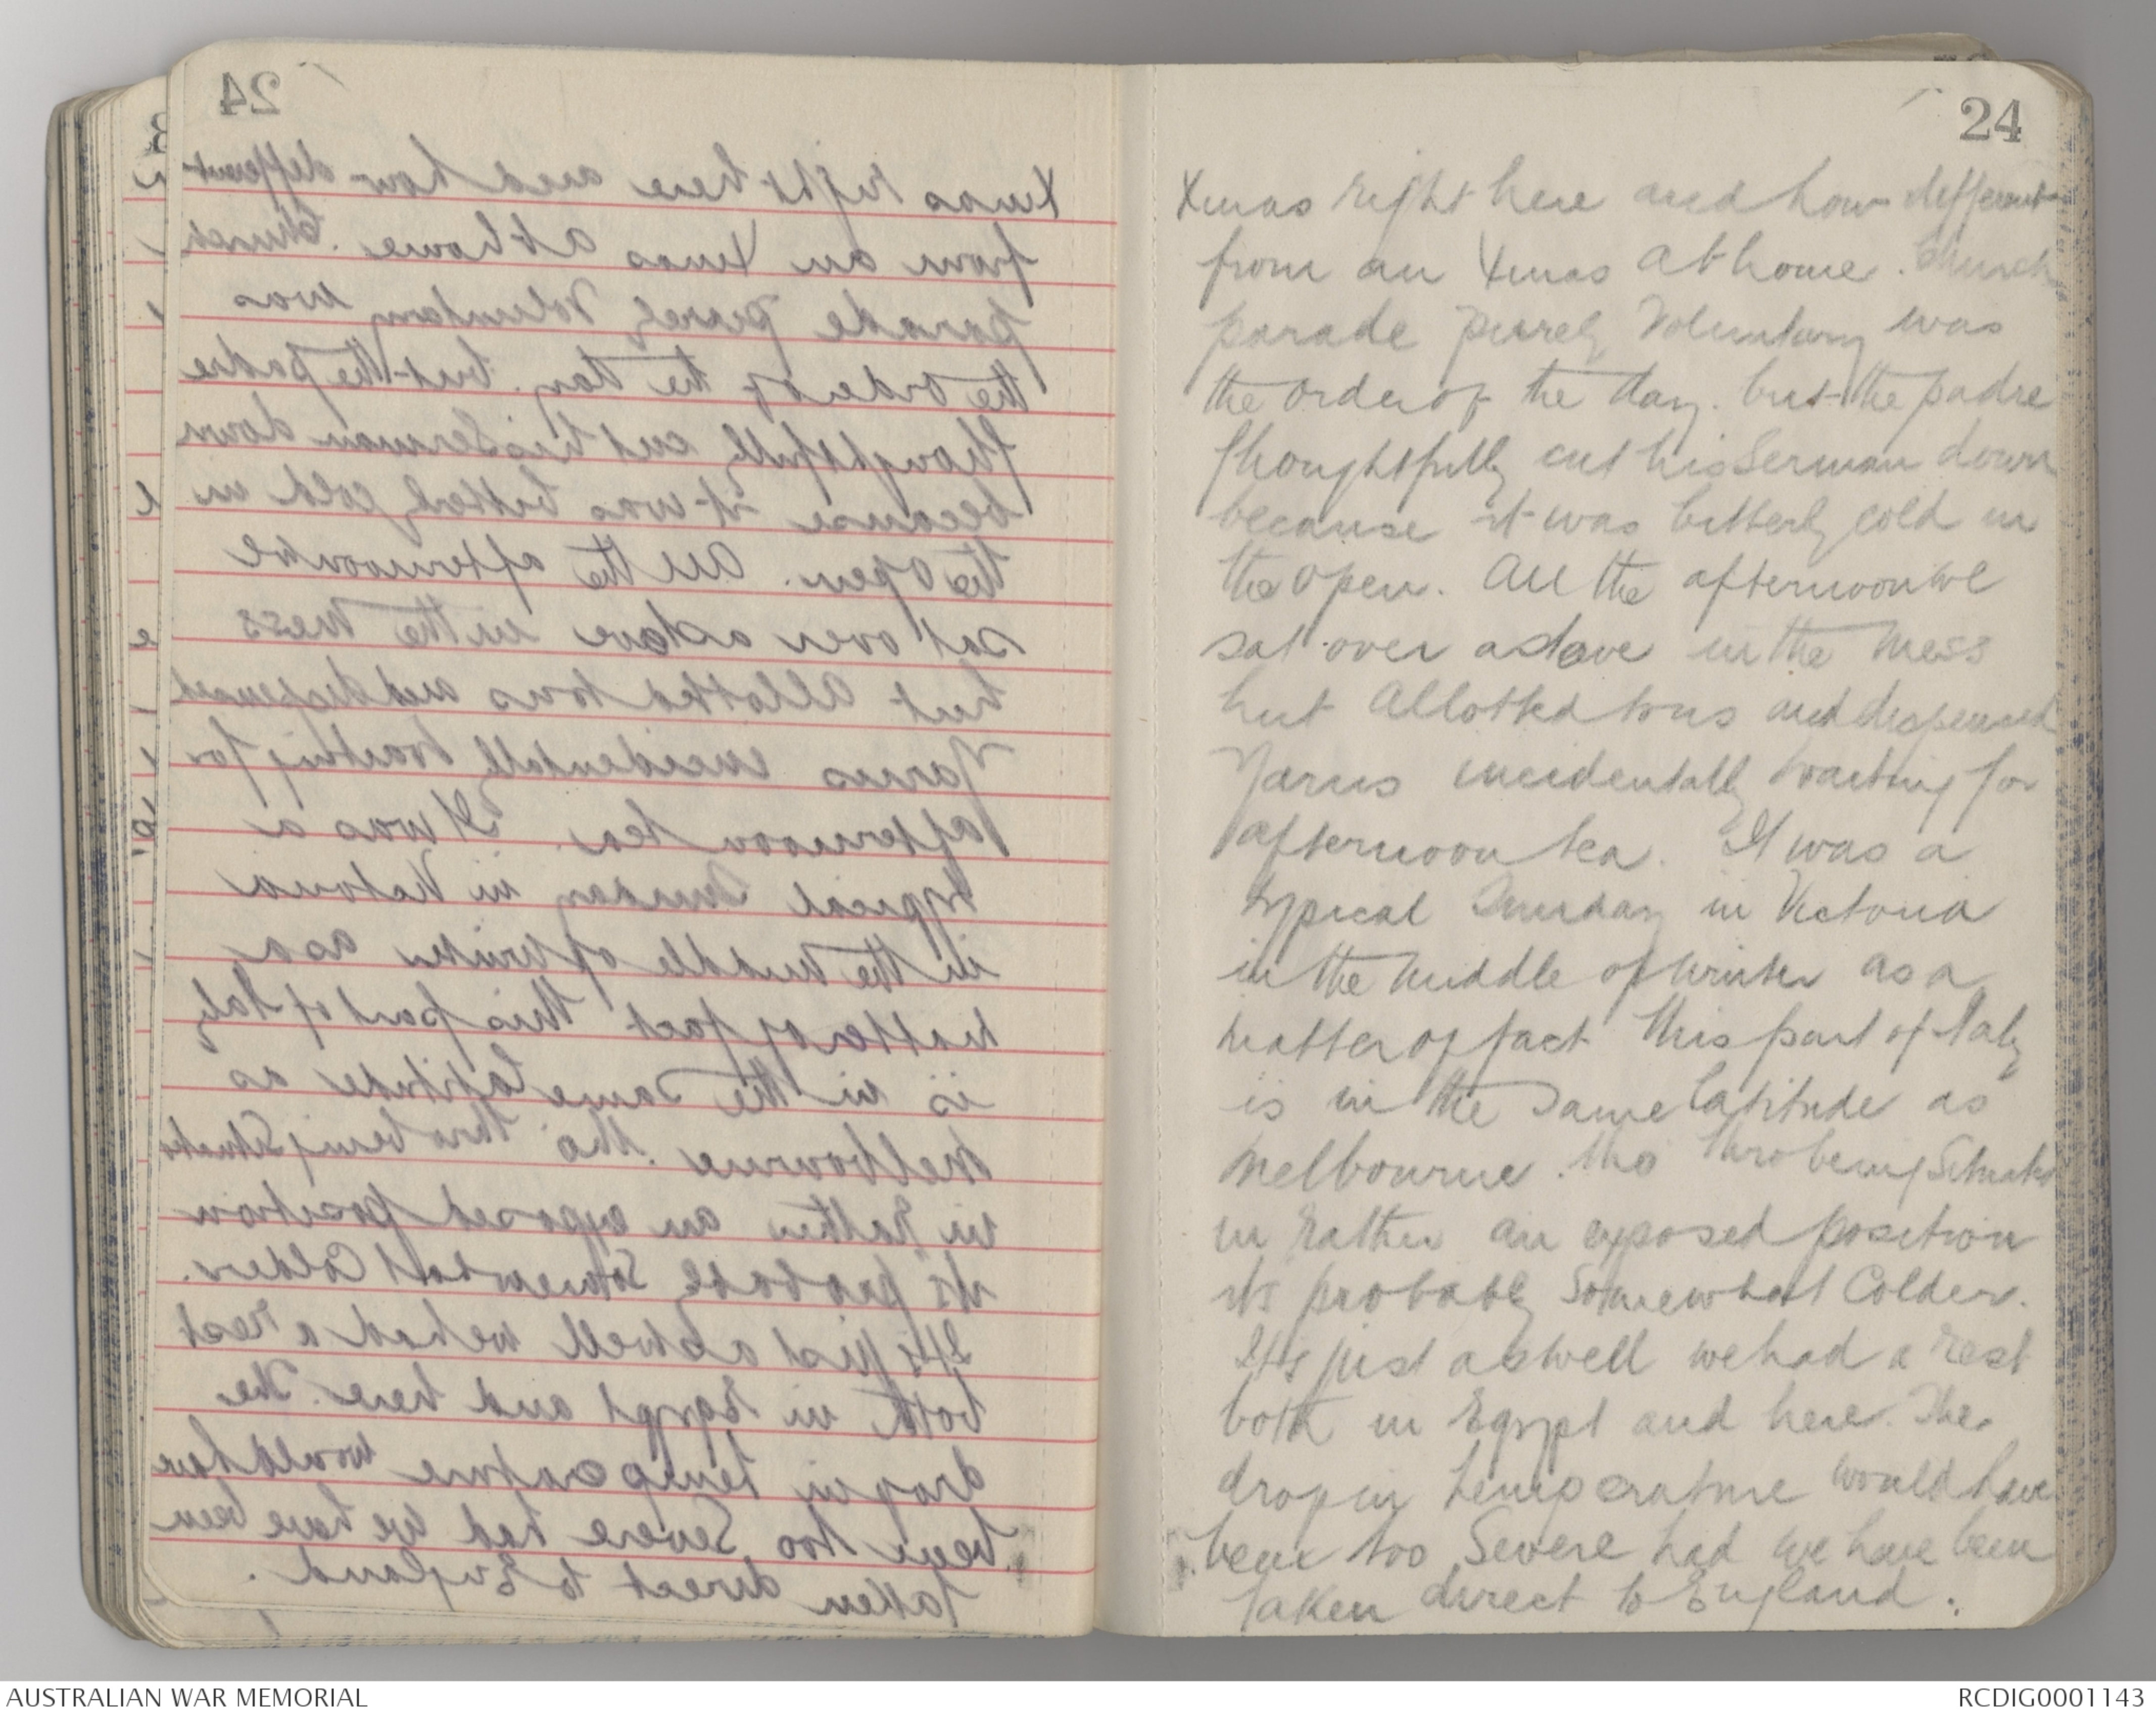 24
Xmas right here and how different
from an Xmas at home. Church
parade purely Voluntary was
the order of the day. but the padre
thoughtfully cut his Serman down
because it was bitterly cold in
the open. All the afternoon we
sat over a stove in the mess
hut allotted to us and dispensed
Yarns incidentally waiting for
afternoon tea. It was a
typical Sunday in Victoria
in the middle of winter as a
matter of fact this part of Italy
is in the same latitude as
Melbourne. tho' thro being Situated
in rather an exposed position
its probably Somewhat Colder.
It's just as well we had a rest
both in Egypt and here. The
drop in temperature would have
been too Severe had we have been
taken direct to England.
AUSTRALIAN WAR MEMORIAL
RCDIG0001143